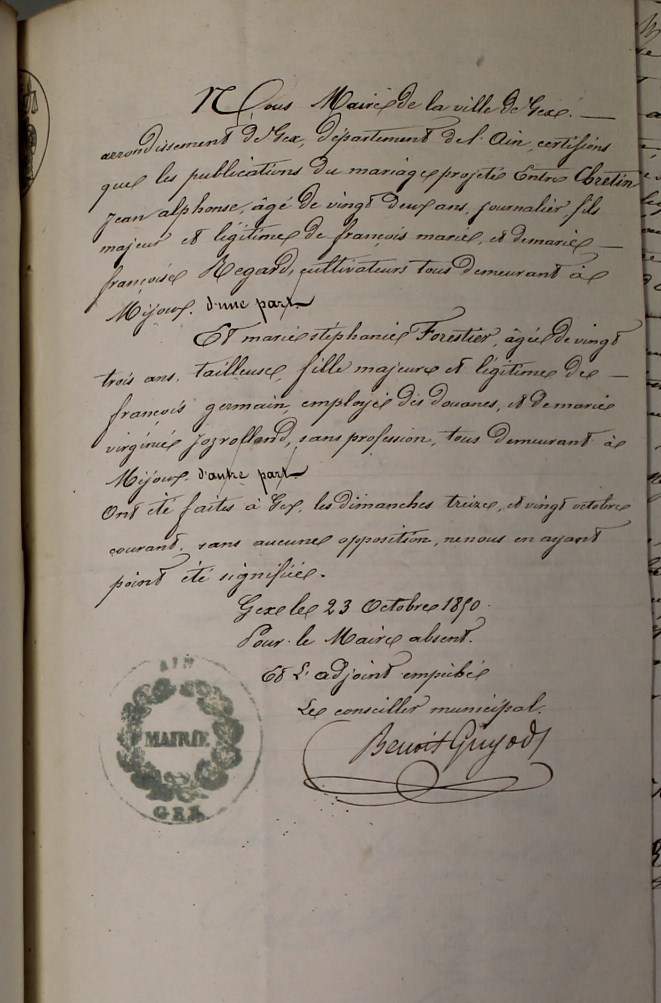 Nous Maire de la ville de Gex. —
arrondissement de Gex, département de l'Ain, certifions
que les publications du mariage projeté Entre Cretin
Jean alphonse, âgé de vingt deux ans, journalier fils
majeur et légitime de françois marie, et de marie —
françoise Regard, cultivateurs tous demeurant à
Mijoux. d'une part
Et marie stéphanie Forestier, âgée de vingt
trois ans, tailleuse, fille majeure et légitime de —
françois germain, employé des douanes, et de marie
virginie sans profession, tous demeurant à
Mijoux. d'autre part
Ont été faites à Gex, les dimanches treize, et vingt octobre
courant, sans aucune opposition, ne nous en ayant
point été signifiée.
Gex le 23 Octobre 1850.
Pour le Maire absent.
Et L'adjoint empêché
Le conseiller municipal.
Benoit Guyod
AIN
MAIRIE
GEX